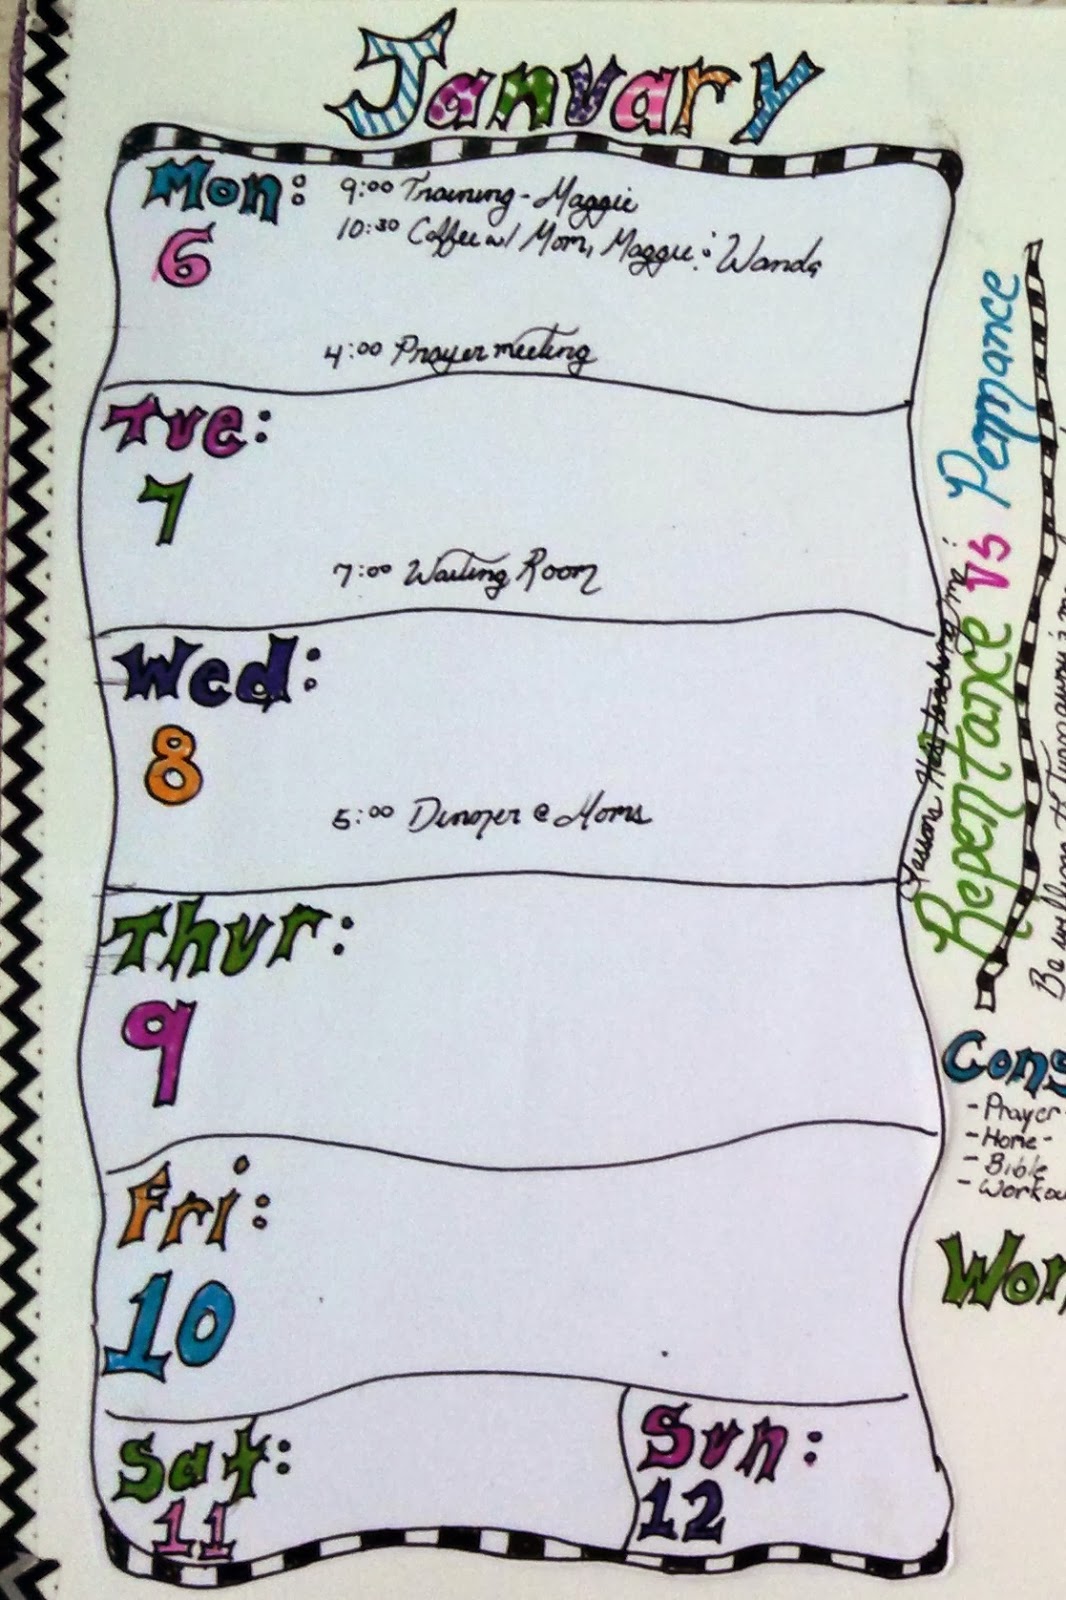 January
Mon:
6
9:00 Training - Maggie
10:30 Coffee w/ Mom, Maggie : Wanda
4:00 Prayer meeting
Tue:
7
7:00 Waiting Room
Wed:
8
5:00 Dinner @ Moms
Thur:
9
Fri:
10
Sat:
11
Sun:
12
Lessons He's teaching me:
Repentance vs Pennance
Be willing to Turn away
Cons
- Prayer -
- Home -
- Bible
- Workou
Wor